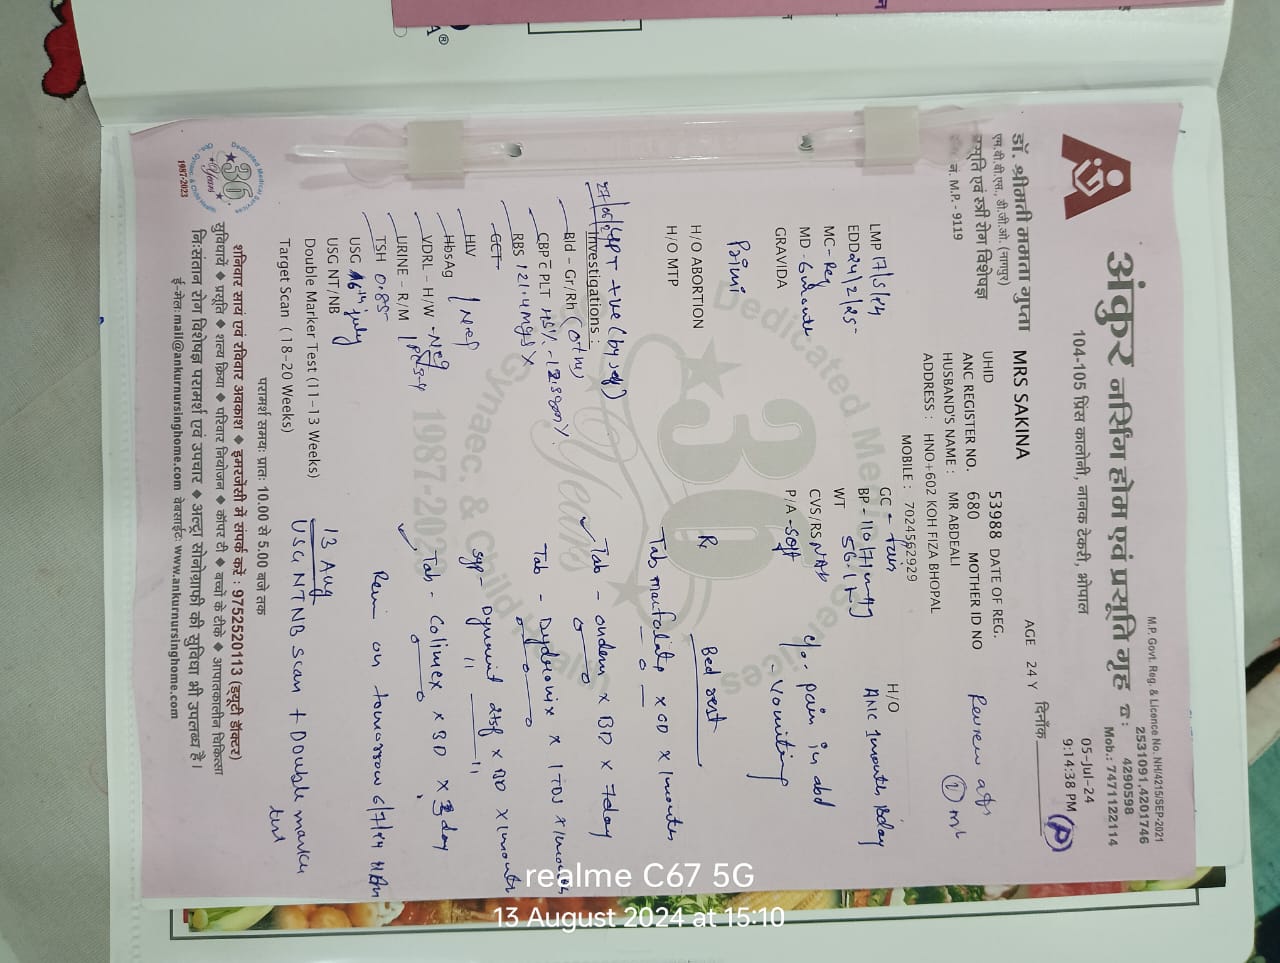 M.P. Govt. Reg. & Licence No. NH/4215/SEP-2021
अंकुर नर्सिंग होम एवं प्रसूति गृह ☎ :
2531091,4201746
4290598
Mob.: 7471122114
104-105 प्रिंस कालोनी, नानक टेकरी, भोपाल
डॉ. श्रीमती ममता गुप्ता
एम.बी.बी.एस., डी.जी.ओ. (नागपुर)
प्रसूति एवं स्त्री रोग विशेषज्ञ
नं. M.P. - 9119
दिनाँक
05-Jul-24
9:14:38 PM
P
MRS SAKINA
AGE 24 Y
UHID 53988 DATE OF REG.
ANC REGISTER NO. 680 MOTHER ID NO
HUSBAND'S NAME : MR ABDEALI
ADDRESS : HNO+602 KOH FIZA BHOPAL
MOBILE : 7024562929
Review
LMP 17/5/24
EDD 24/2/25
MC- Reg
MD -
GRAVIDA
Primi
H/O ABORTION
H/O MTP
GC - fair
BP - 110/71
WT 56.1 K
CVS/RS NAD
P/A - soft
H/O
ANC 1 month 18 day
c/o - pain in abd
- Vomiting
UPT +ve (by self)
Investigations :
Bld - Gr/Rh
CBP c PLT
RBS 121.4 mg
GCT
HIV
HbsAg
VDRL - H/W - Neg
URINE - R/M
TSH 0.85
USG 16th july
USG NT/NB
Double Marker Test (11-13 Weeks)
Target Scan ( 18-20 Weeks)
Rx
Bed rest
Tab x OD x 1 month
Tab - ondem x BD x 7 day
Tab - Dydronix x 1 TDS x 1 month
Syp - x BD x 1 month
Tab - Colimex x BD x 3 day
on tomorrow 6/7/24
13 Aug
USG NTNB Scan + Double marker test
Dedicated Medical Services
36
Years
Gynaec. & Child
1987-2023
परामर्श समय: प्रात: 10.00 से 5.00 बजे तक
शनिवार सायं एवं रविवार अवकाश ◆ इमरजेंसी में संपर्क करें : 9752520113 (ड्यूटी डॉक्टर)
सुविधायें ◆ प्रसूति ◆ शल्य क्रिया ◆ परिवार नियोजन ◆ कॉपर टी ◆ बच्चों के टीके ◆ आपातकालीन चिकित्सा
नि:संतान रोग विशेषज्ञ परामर्श एवं उपचार ◆ अल्ट्रा सोनोग्राफी की सुविधा भी उपलब्ध है।
ई-मेल: mail@ankurnursinghome.com वेबसाईट: www.ankurnursinghome.com
realme C67 5G
13 August 2024 at 15:10